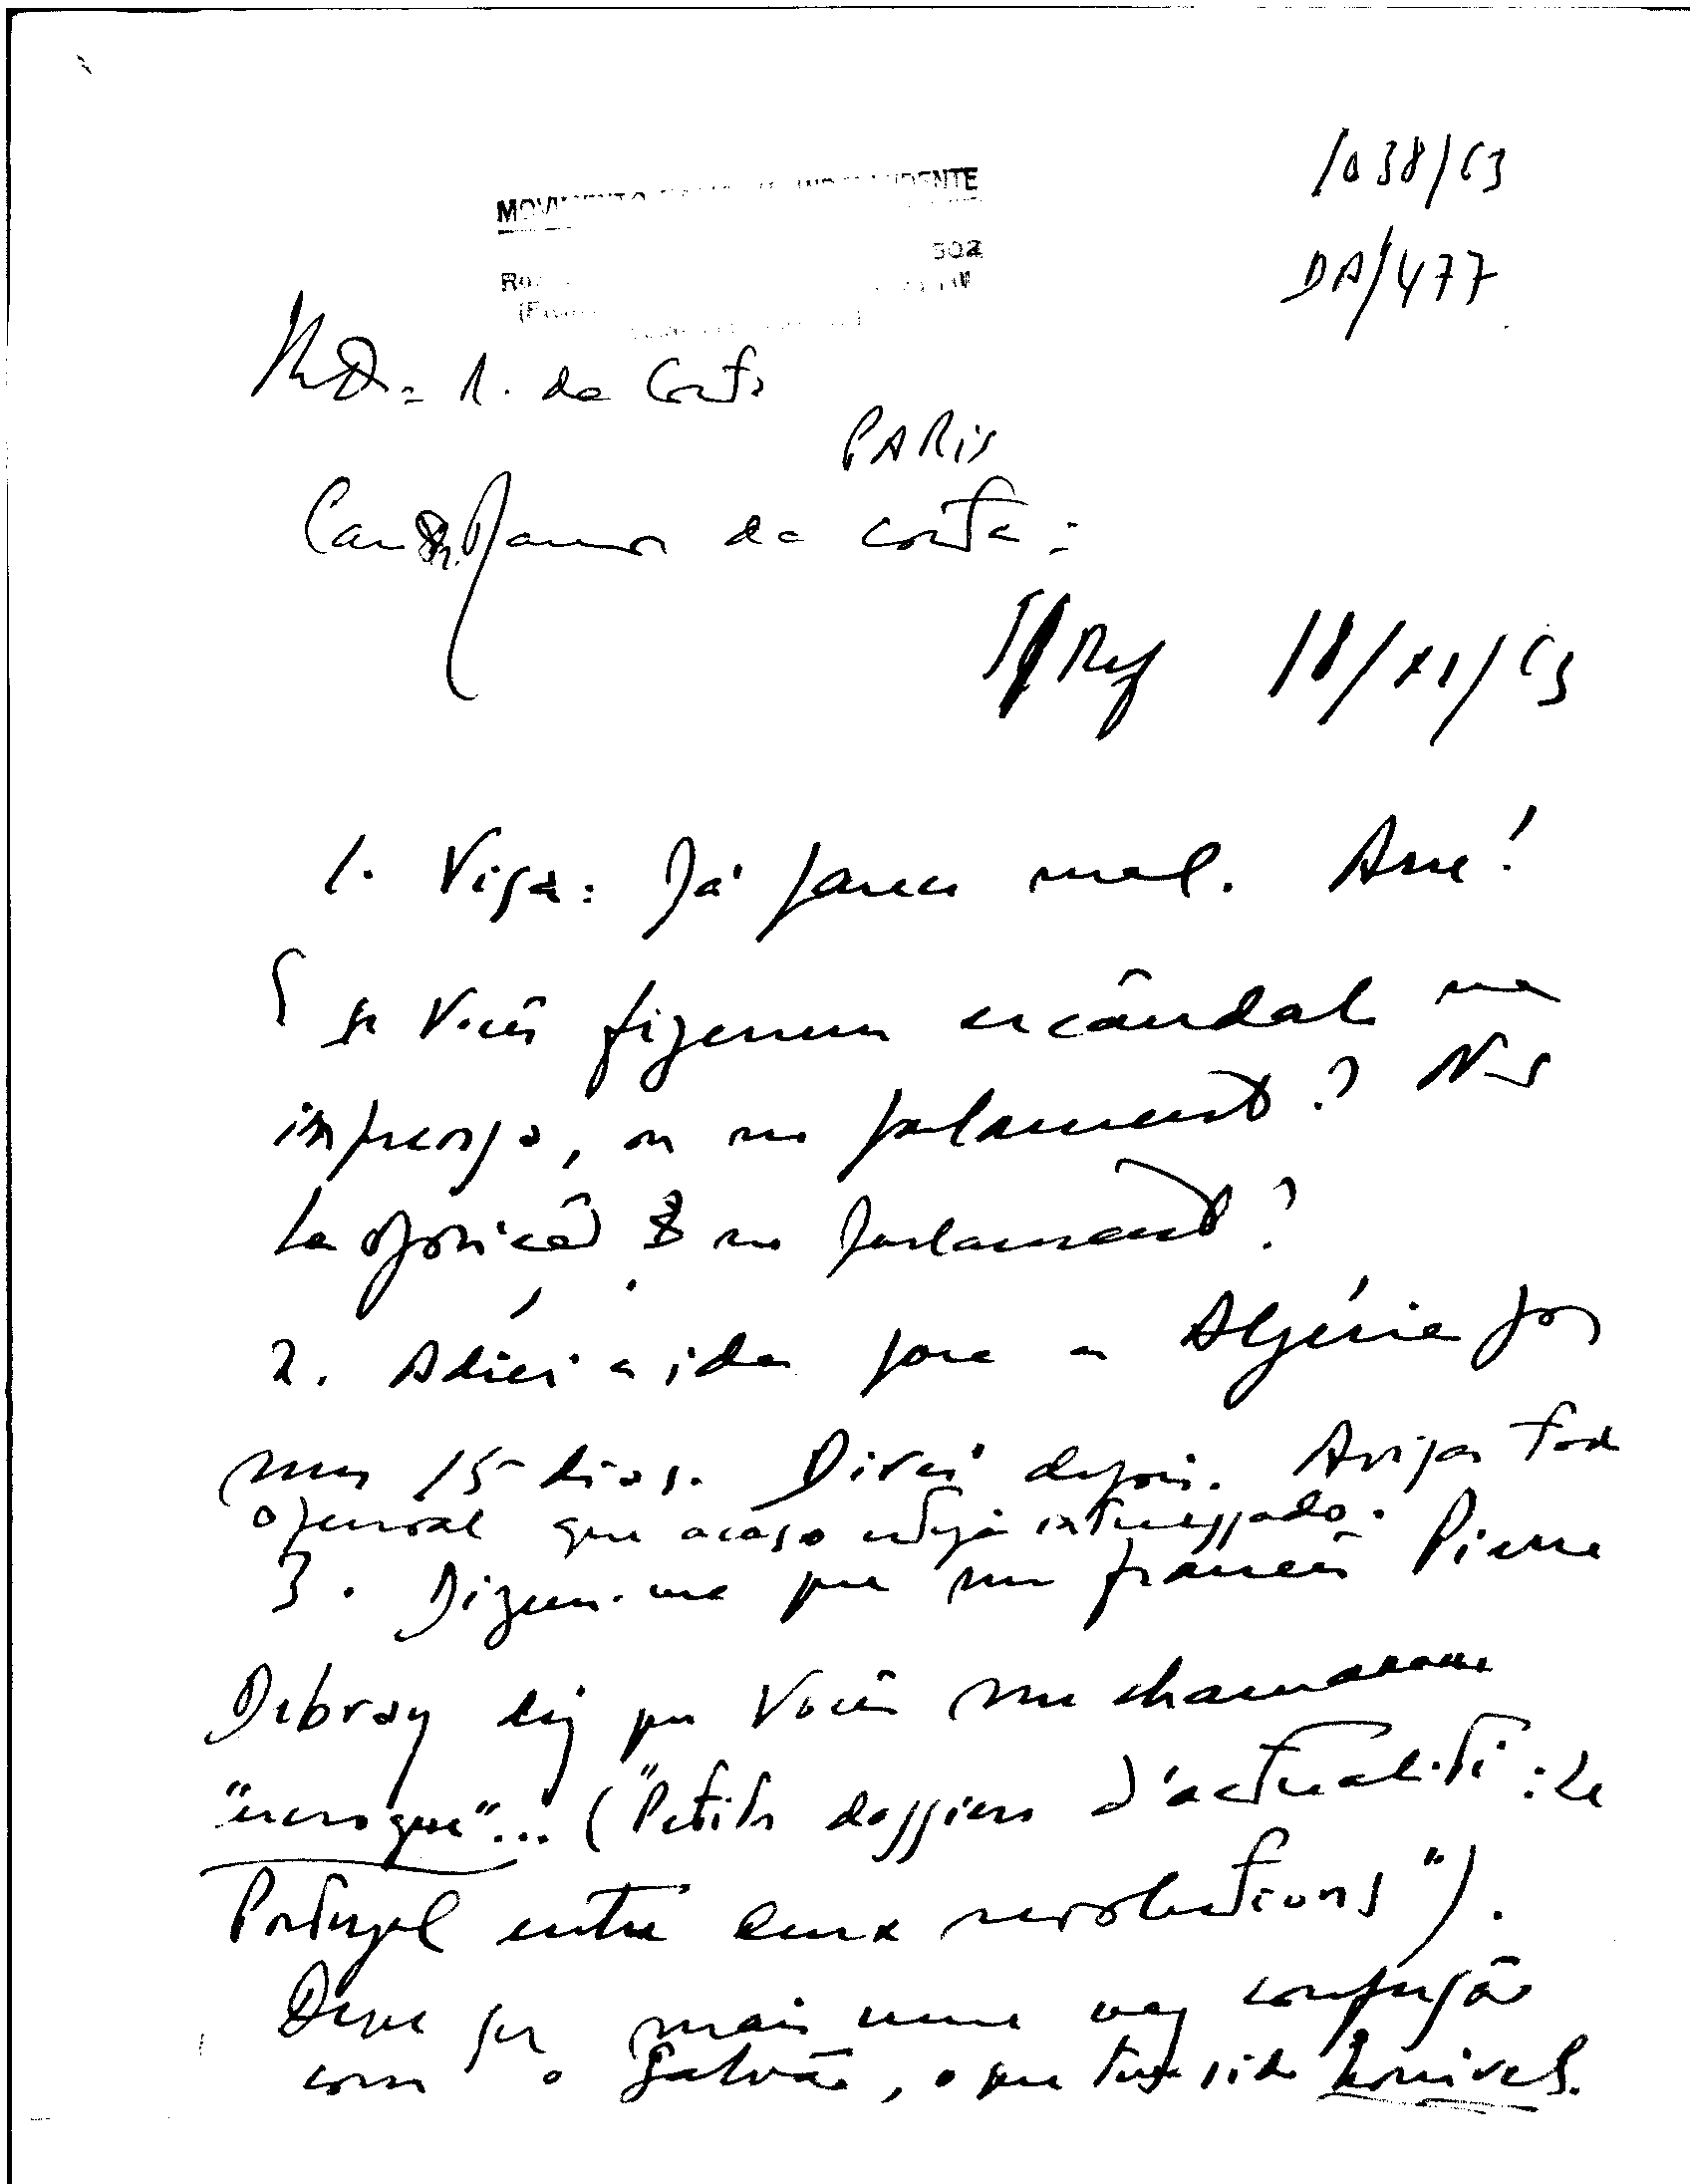 1038/63
MOVIMENTO INDEPENDENTE
DA/477
302
R. da Costa
PARIS
Caro Dr. Ramos da Costa:
18/XI/63
1. Visa: Já parece mal. Arre!
E se Vocês fizerem escândalo na
imprensa, ou no parlamento? Não
há oposição no parlamento?
2. Adiei a ida para a Algéria por
uns 15 dias. Direi depois. Avisar todo
o pessoal que acaso esteja interessado.
3. Dizem-me que um francês Pierre
Debray diz que Vocês me chamaram
"escroque"... ("Petits dossiers d'actualité: Le
Portugal entre deux revolutions").
Deve ser mais uma vez confusão
com o Galvão, o que tem sido horrível.